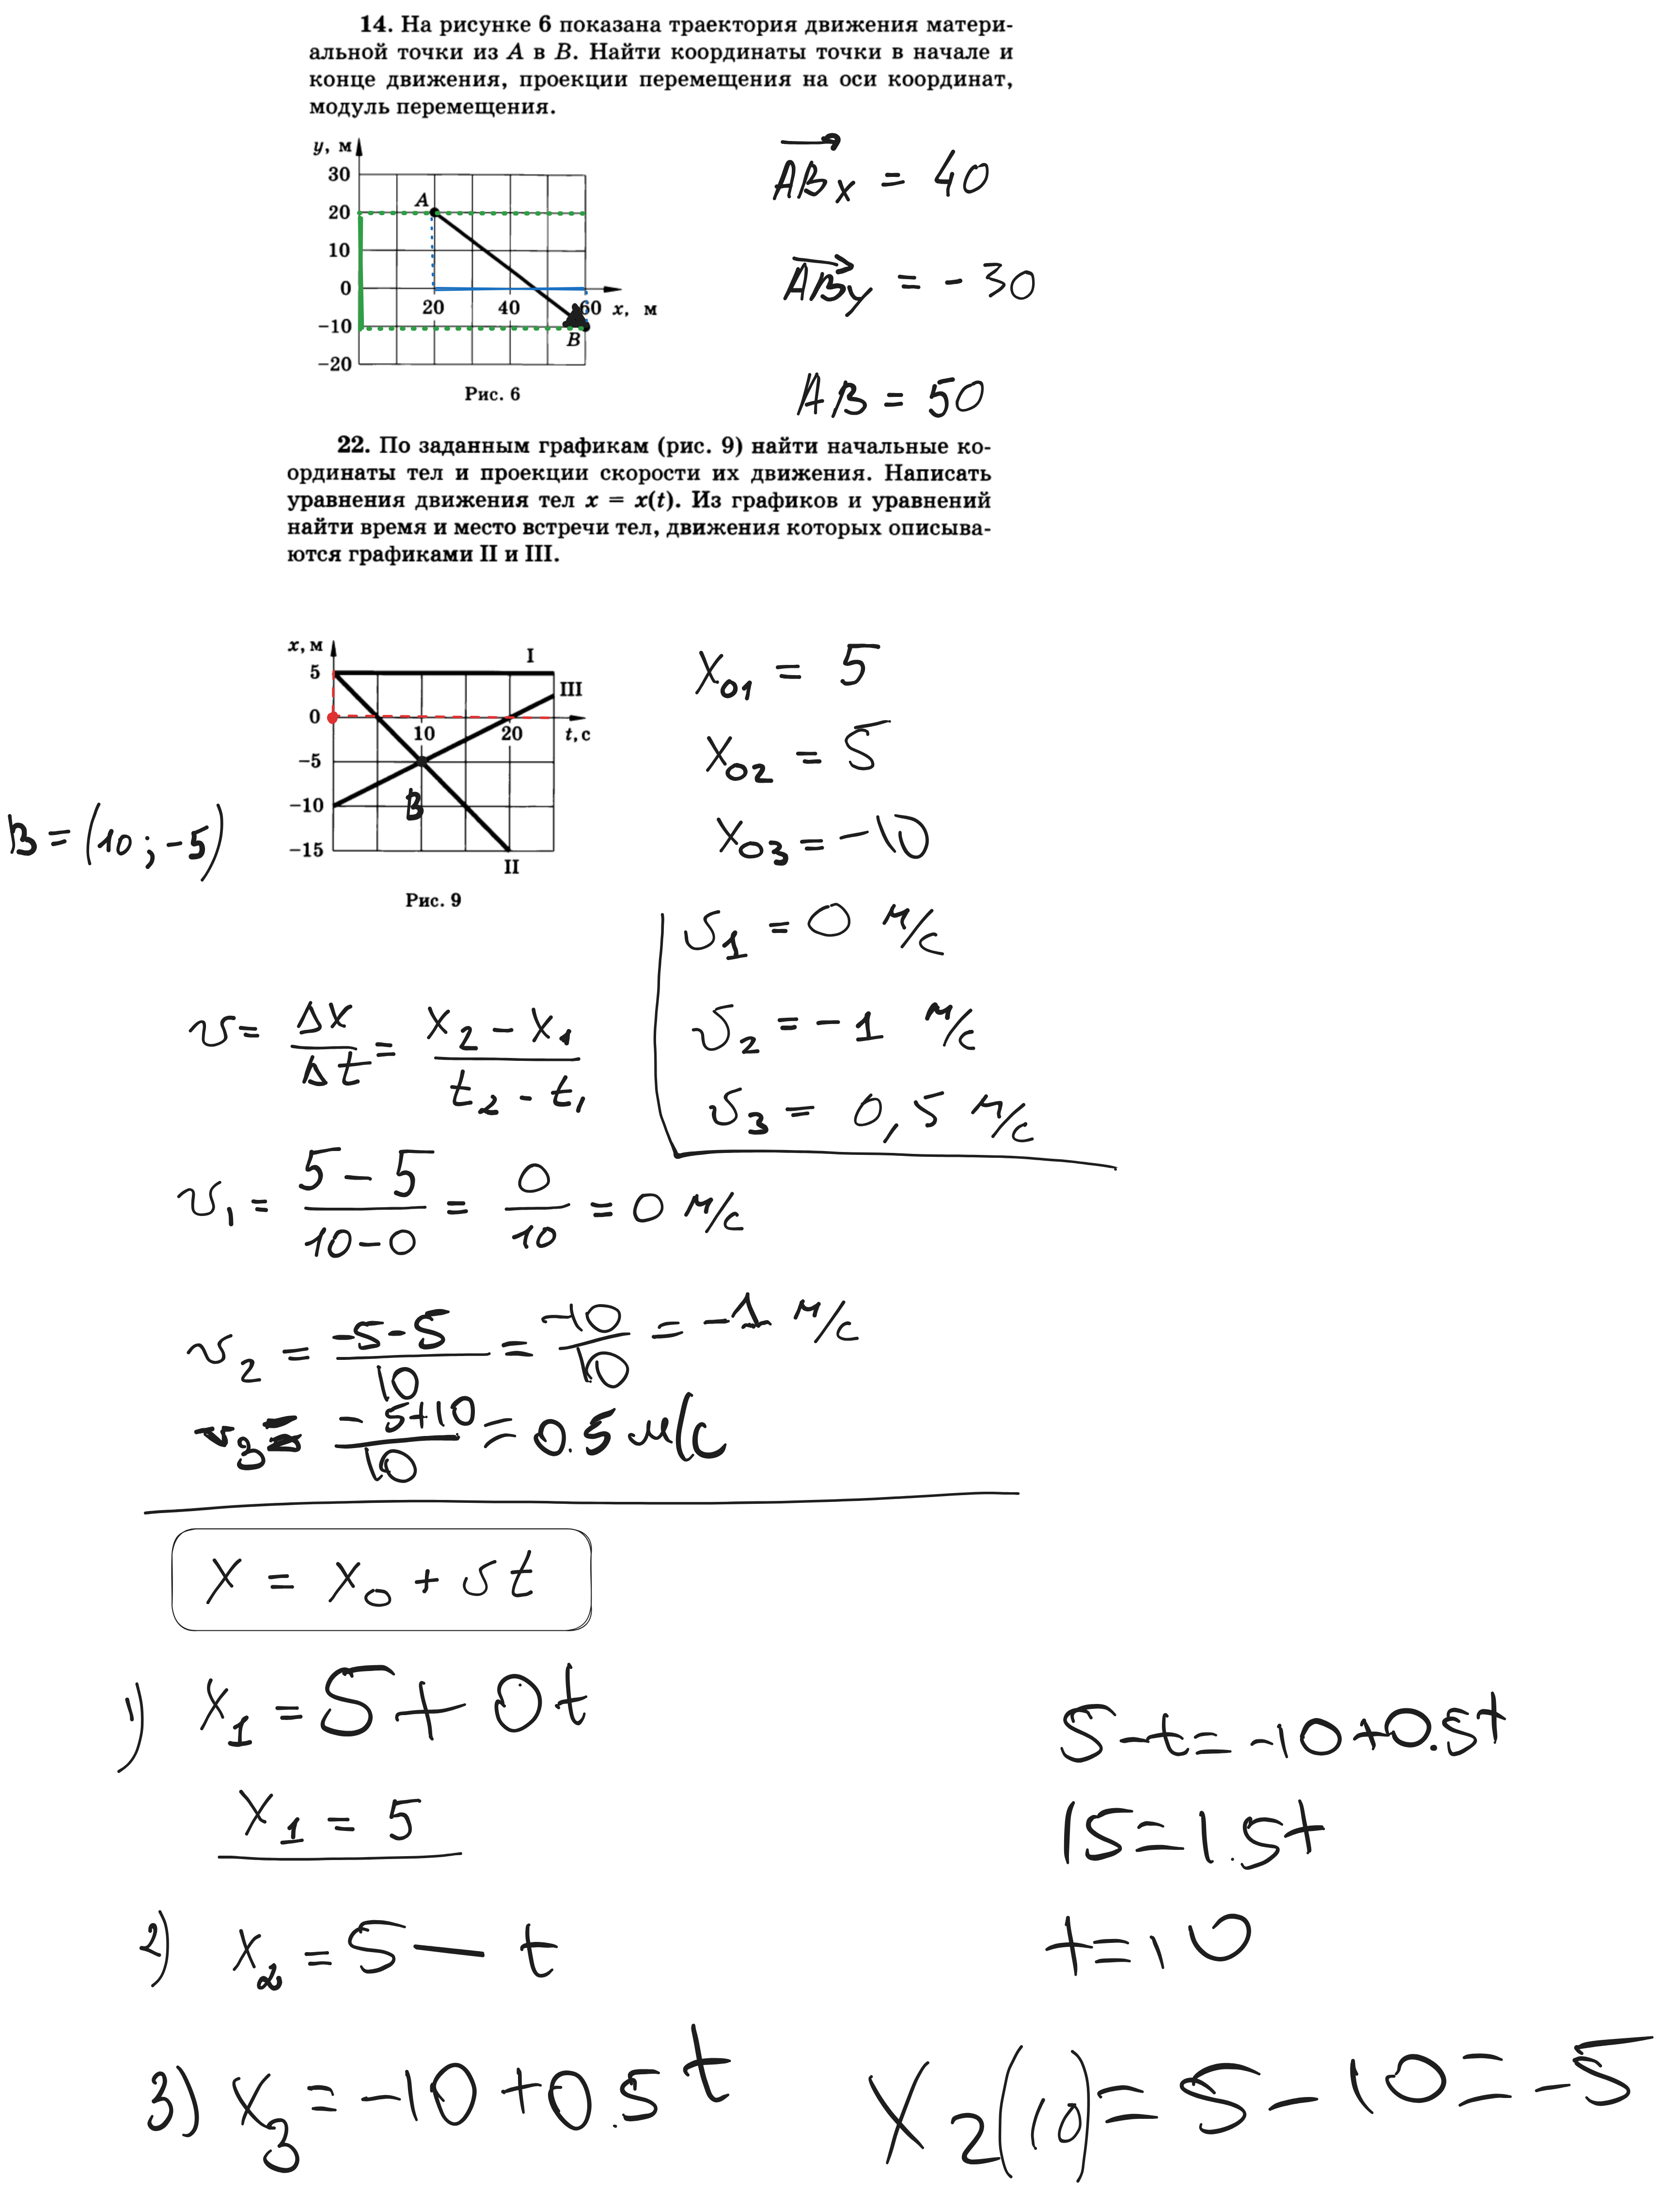 14. На рисунке 6 показана траектория движения матери-
альной точки из A в B. Найти координаты точки в начале и
конце движения, проекции перемещения на оси координат,
модуль перемещения.
y, м
30
20
10
0
−10
−20
A
B
20 40 60 x, м
Рис. 6
ABx = 40
ABy = - 30
AB = 50
22. По заданным графикам (рис. 9) найти начальные ко-
ординаты тел и проекции скорости их движения. Написать
уравнения движения тел x = x(t). Из графиков и уравнений
найти время и место встречи тел, движения которых описыва-
ются графиками II и III.
x, м
5
0
−5
−10
−15
I
III
II
10 20 t, с
B
Рис. 9
B = (10 ; -5)
X01 = 5
X02 = 5
X03 = -10
υ1 = 0 м/с
υ2 = - 1 м/с
υ3 = 0,5 м/с
υ = Δx/Δt = (x2 - x1)/(t2 - t1)
υ1 = (5 - 5)/(10 - 0) = 0/10 = 0 м/с
υ2 = (-5-5)/10 = -10/10 = -1 м/с
υ3 = (-5+10)/10 = 0.5 м/с
X = X0 + υt
1) X1 = 5 + 0t
X1 = 5
2) X2 = 5 - t
3) X3 = -10 + 0.5t
5 - t = -10 + 0.5t
15 = 1.5t
t = 10
X2(10) = 5 - 10 = -5